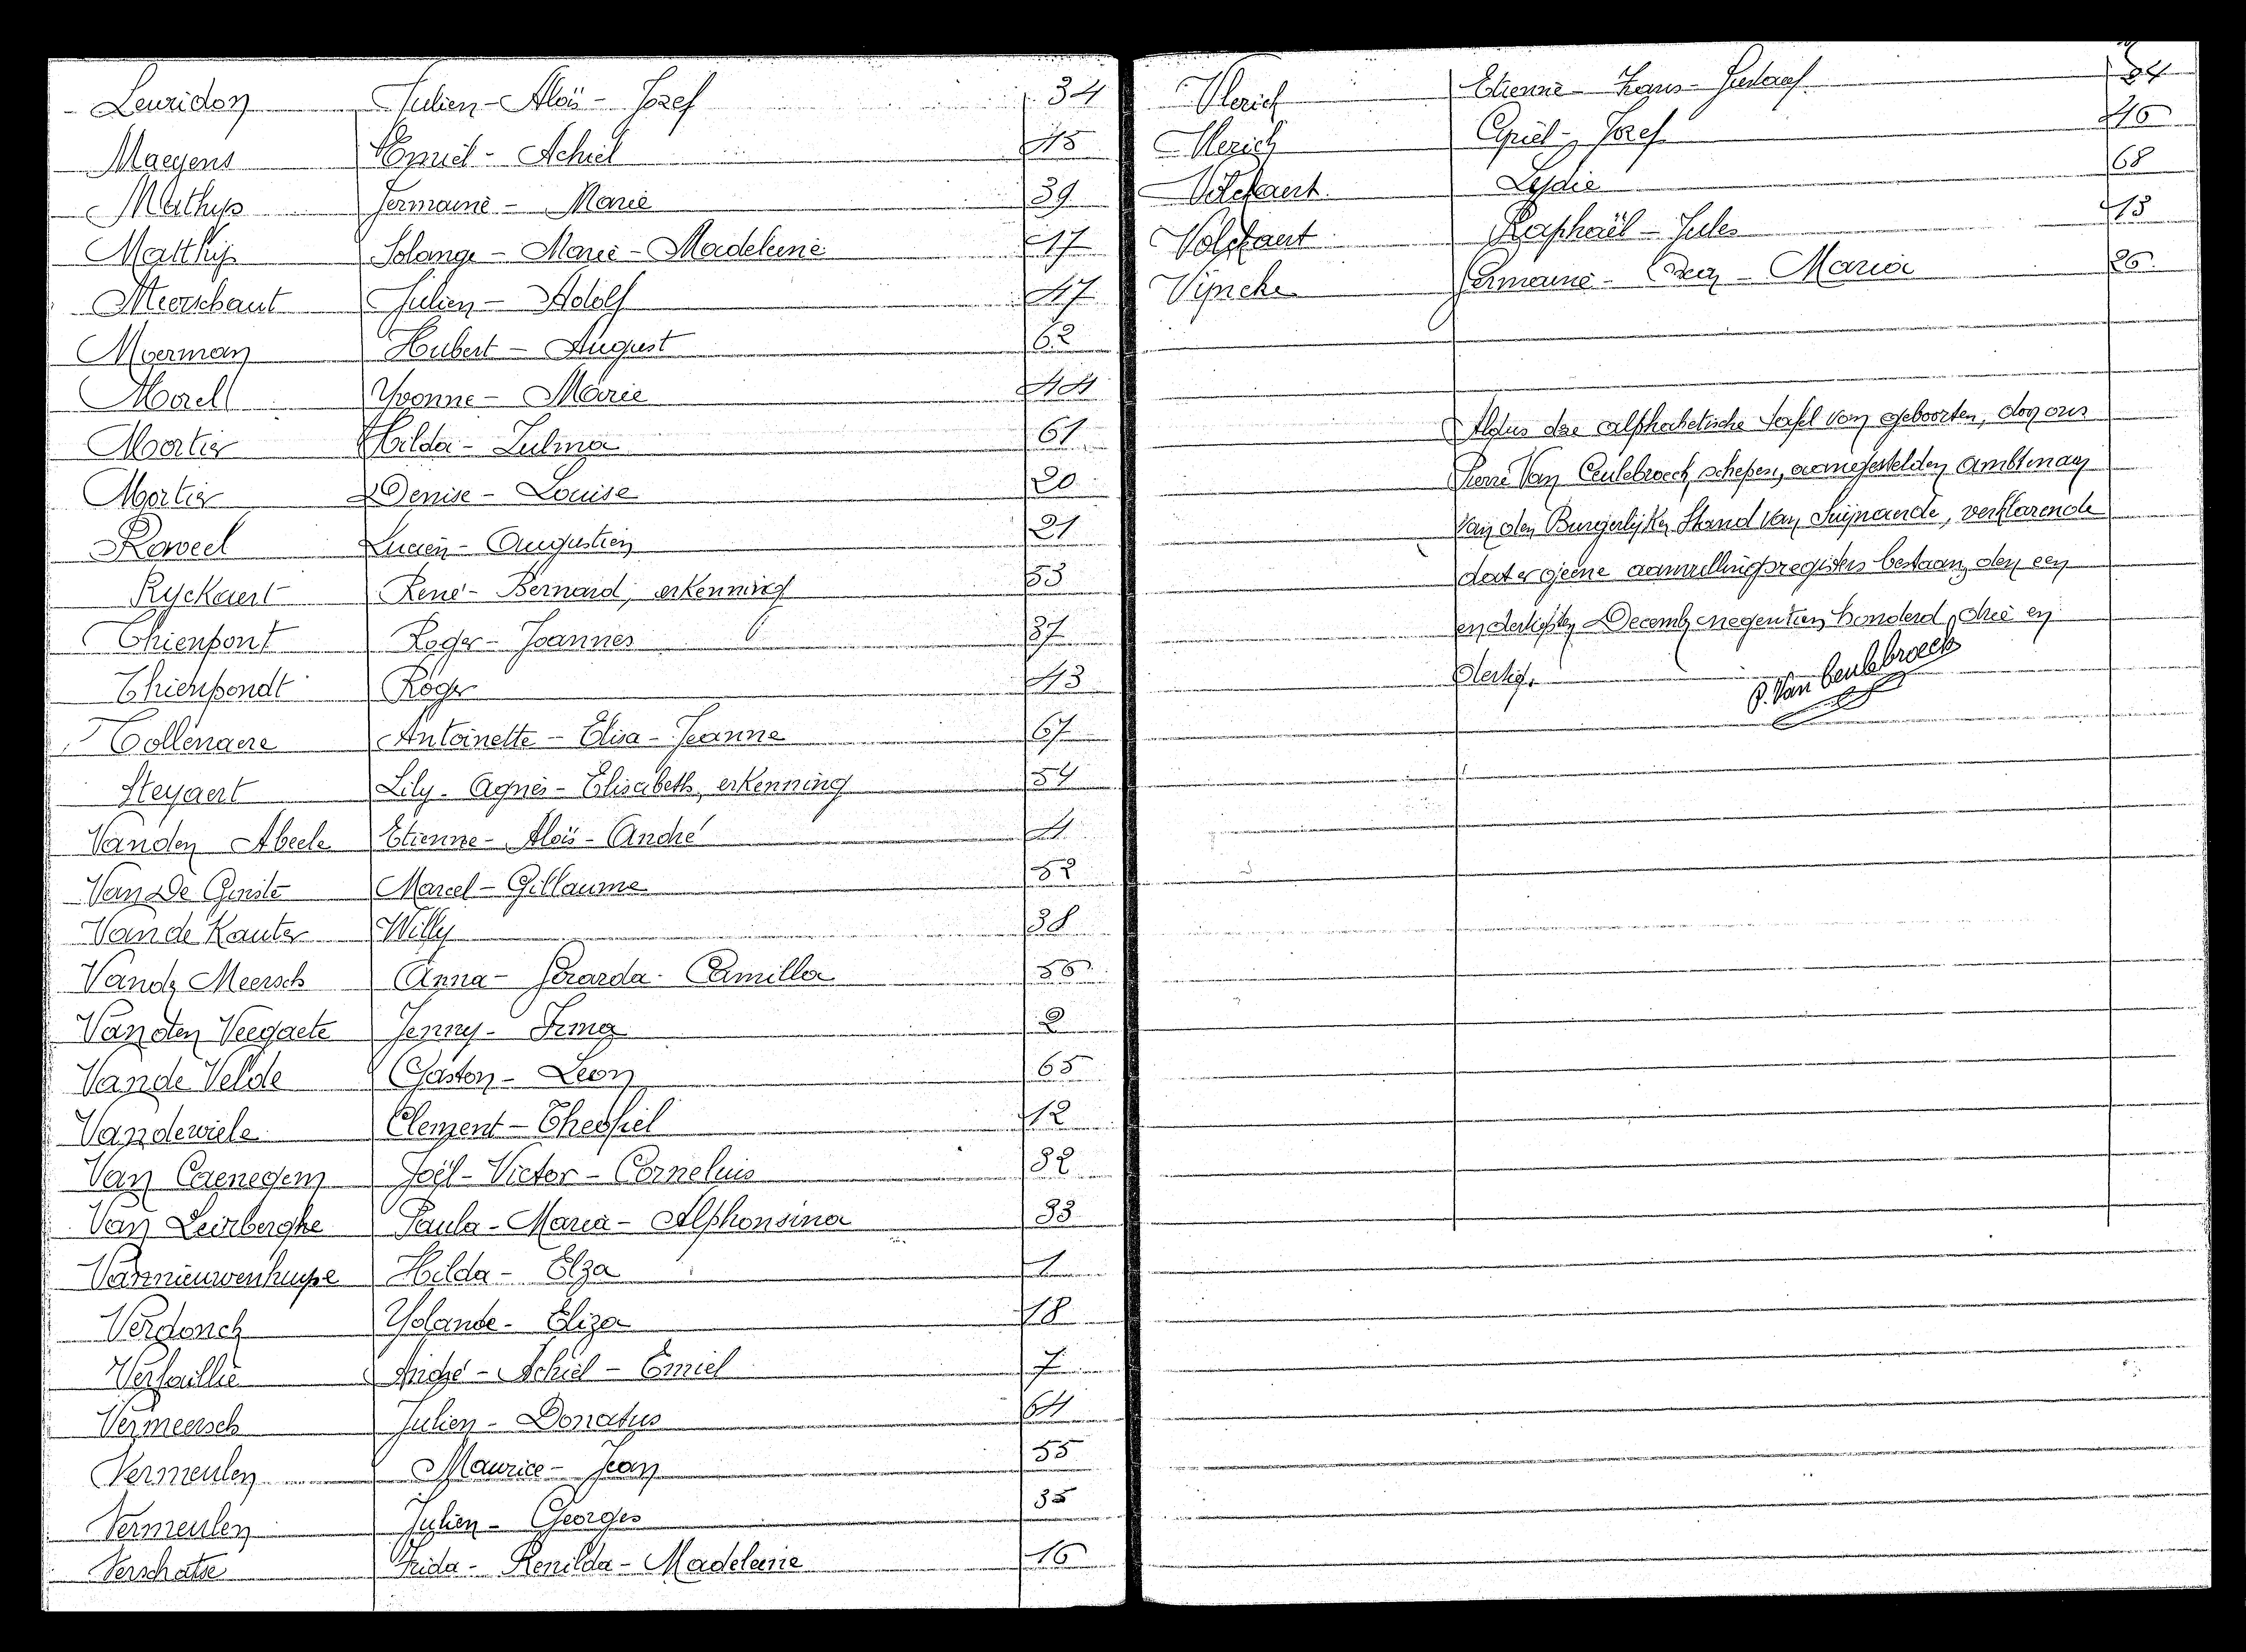 Leuridon Julien - Aloïs - Jozef 34
Maeyens Emiel - Achiel 45
Mathys Germaine - Marie 39
Matthys Solange - Marie - Madeleine 17
Meerschaut Julien - Adolf 47
Moerman Hubert - August 62
Morel Yvonne - Marie 44
Mortier Hilda - Zulma 61
Mortier Denise - Louise 20
Roweel Lucien - Augustien 21
Ryckaert René - Bernard, erkenning 53
Thienpont Roger - Joannes 37
Thienpondt Roger 43
Tollenaere Antoinette - Elisa - Jeanne 67
Steyaert Lily - Agnès - Elisabeth, erkenning 54
Vanden Abeele Etienne - Aloïs - André 4
Van De Ginste Marcel - Gillaume 52
Van de Kauter Willy 38
Vander Meersch Anna - Gerarda - Camilla 56
Van den Veegaete Jenny - Irma 2
Van de Velde Gaston - Leon 65
Vandewiele Clement - Theofiel 12
Van Caenegem Joël - Victor - Cornelius 32
Van Leirberghe Paula - Maria - Alphonsina 33
Vannieuwenhuyse Hilda - Elza 1
Verdonck Yolande - Eliza 18
Verfaillie André - Achiel - Emiel 7
Vermeersch Julien - Donatus 64
Vermeulen Maurice - Jean 55
Vermeulen Julien - Georges 35
Verschatse Frida - Renilda - Madeleine 16
Vlerick Etienne - - Gustaaf 24
Vlerick Cyriel - Jozef 46
Volckaert Lydie 68
Volckaert Raphaël - Jules 13
Vyncke Germaine - - Maria 26
Aldus deze alphabetische tafel van geboorten, door ons
Pierre Van Ceulebroeck, schepen, aangestelden ambtenaar
van den Burgerlijken Stand van Suijnaerde, verklarende
dat er geene aanvullingsregisters bestaan, den een
en dertigsten December negentien honderd drie en
dertig.
P. Van Ceulebroeck